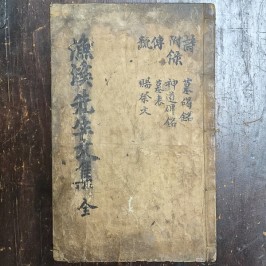 詩
附錄
傳
誌
墓碣銘
神道碑銘
墓表
賜祭文
漁溪先生文集 全